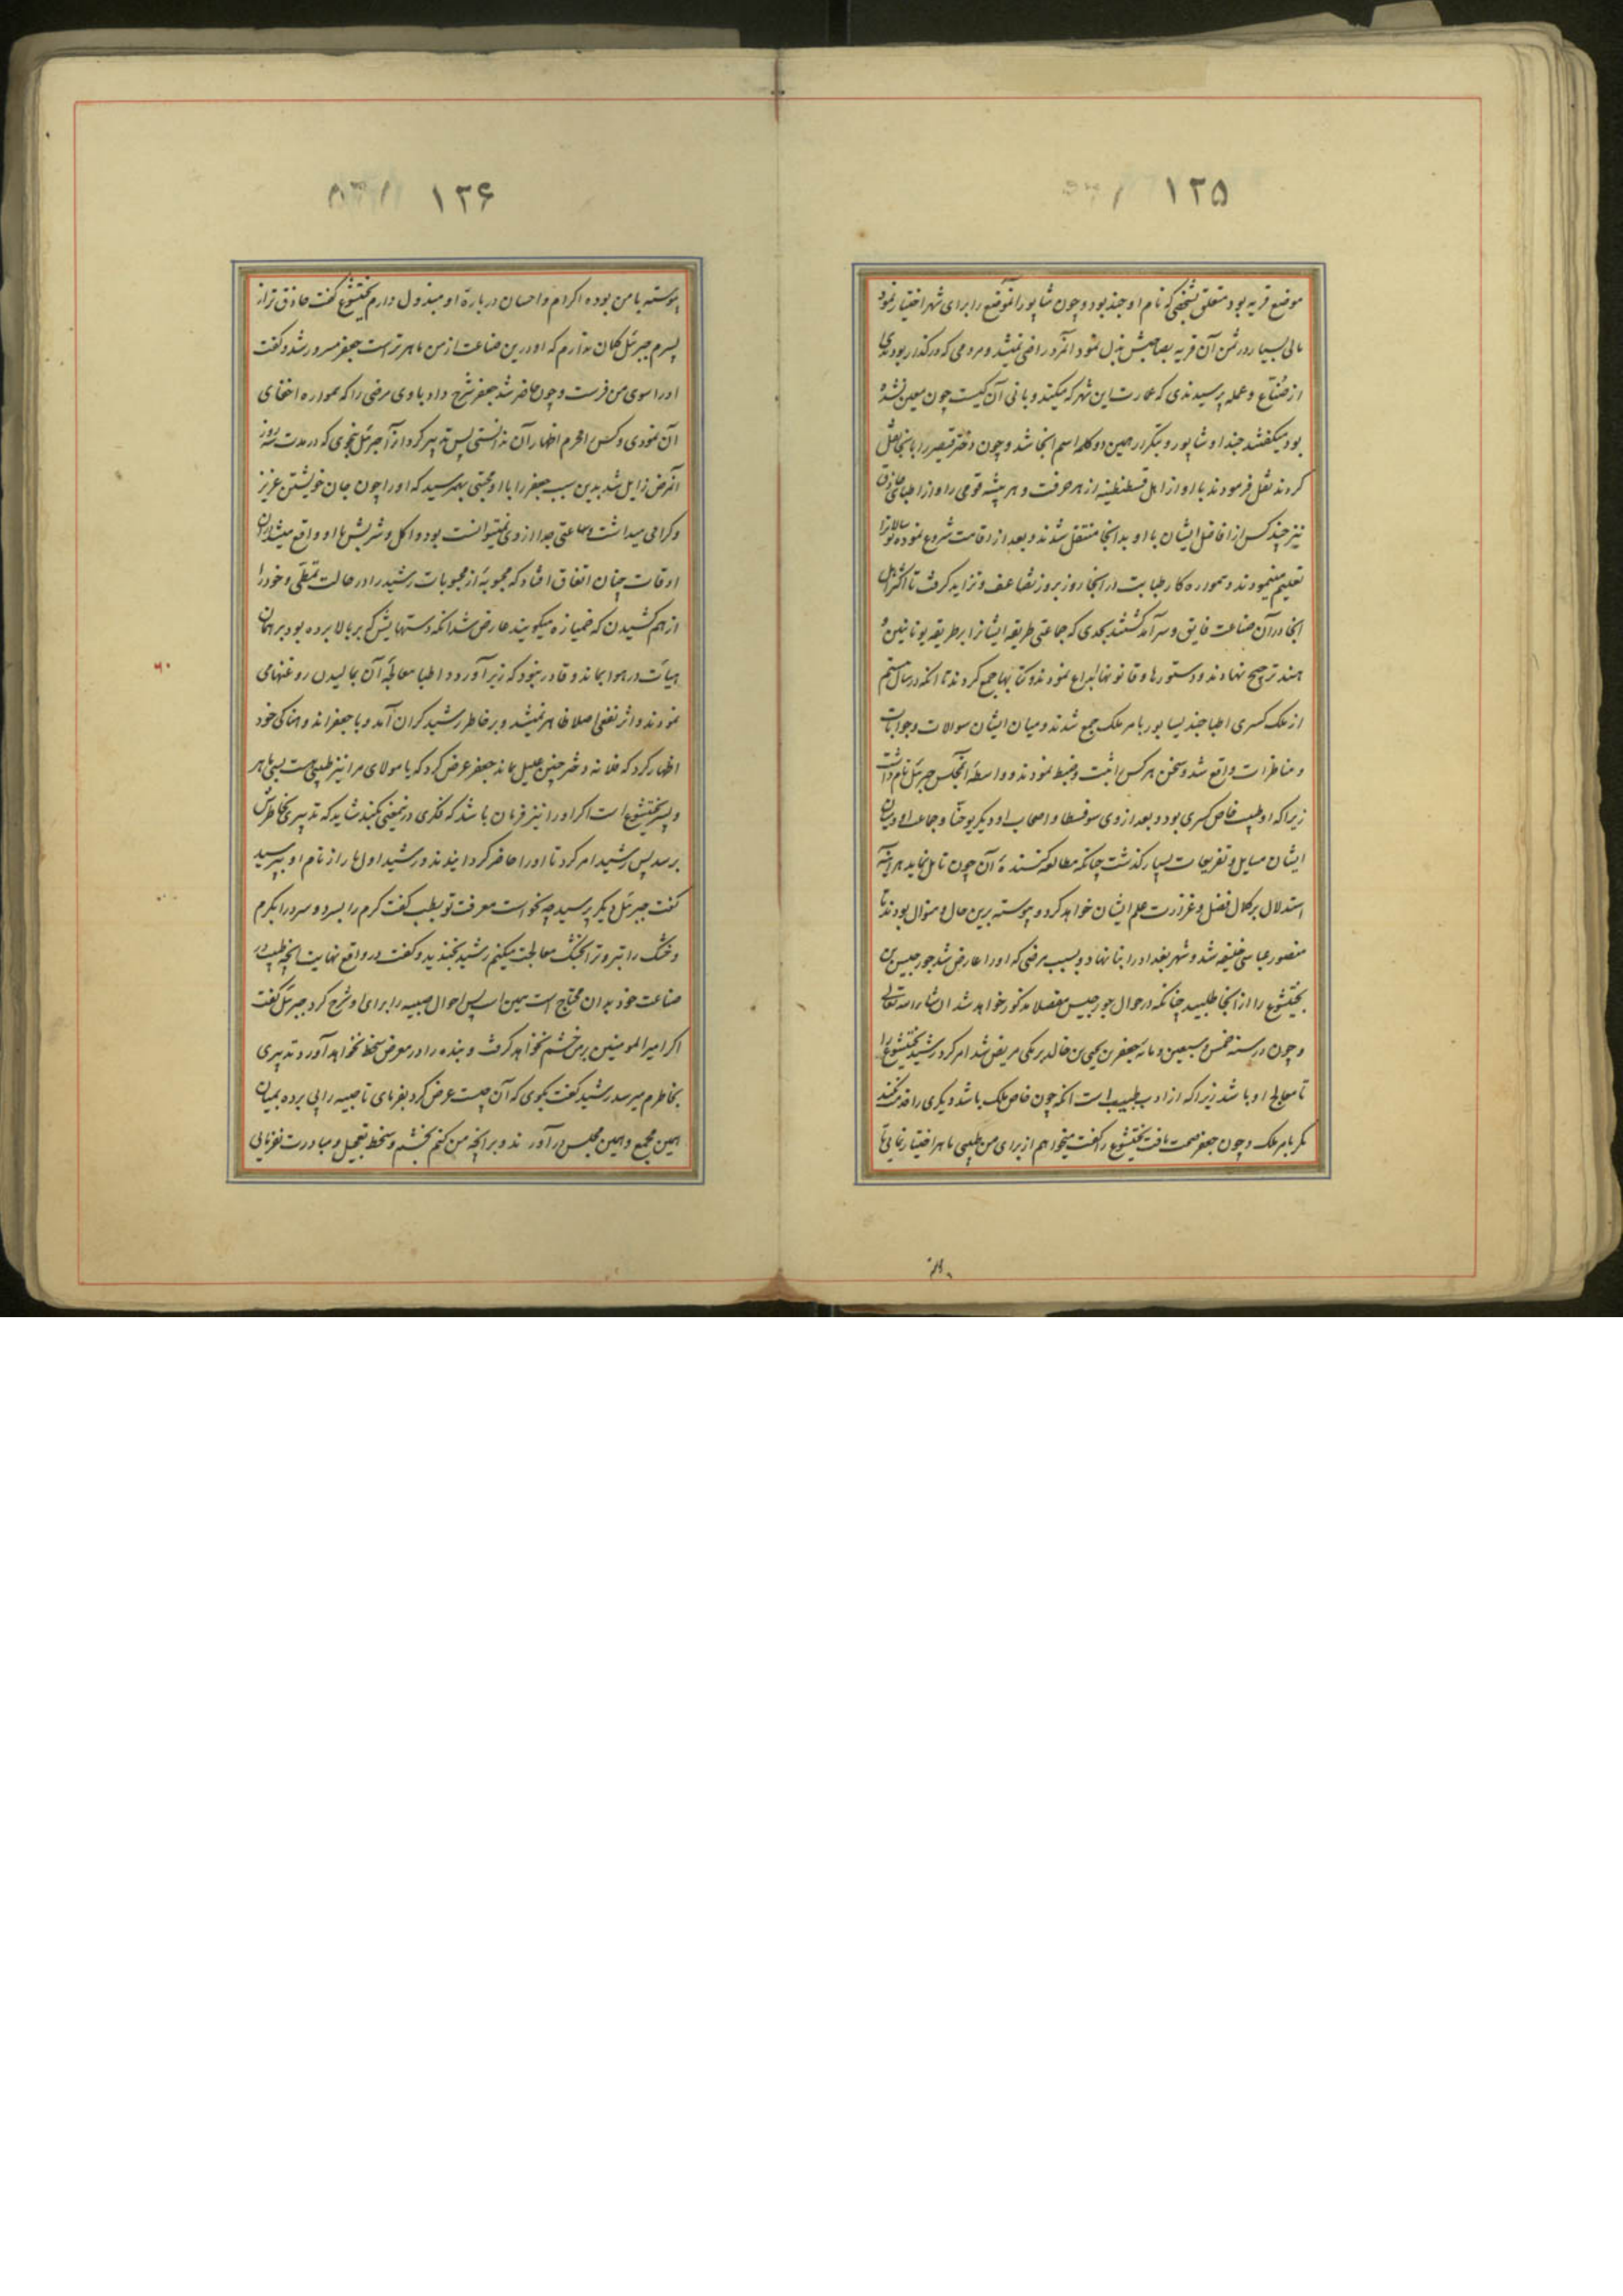 ۱۲۵
موضع قریه بود متعلق بشخصی که نام او جند بود و چون شاپور آنموضع را برای شهر اختیار نمود
مالی بسیار در ثمن آن قریه بصاحبش بذل نمود آنمرد راضی نمیشد و مردمی که در گذار بودندی
از صُنّاع و عمله پرسیدندی که عمارت این شهر که میکند و بانی آن کیست چون معین نشده
بود میگفتند جند او شاپور و بتکرار همین دو کلمه اسم انجا شد و چون دختر قیصر را بانجا نقل
کردند نقل فرمودند با او از اهل قسطنطنیه از هر حرفت و هر پیشه قومی را و از اطبای حاذق
نیز چند کس از افاضل ایشان با او بدانجا منتقل شدند و بعد از اقامت شروع نموده
تعلیم مینمودند و همواره کار طبابت در انجا روز بروز تضاعف و تزاید گرفت تا اکثر اهل
انجا در آن صناعت فایق و سرآمد گشتند بحدی که جماعتی طریقه ایشانرا بر طریقه یونانیین و
هند ترجیح نهادند و دستورها و قانونها ابداع نمودند و کتابها جمع کردند تا آنکه در سال بیستم
از ملک کسری اطبا جندیسابور بامر ملک جمع شدند و میان ایشان سوالات و جوابات
و مناظرات واقع شد و سخن هر کس را ثبت و ضبط نمودند و واسطهٔ آنمجلس جبرئل نام داشت
زیرا که او طبیب خاص کسری بود و بعد از وی سوفسطا و اصحاب او و دیگر یوحنّا و جماعه او و میان
ایشان مسایل و تفریعات بسیار گذشت چنانکه مطالعه کنندهٔ آن چون تامل نماید هرآینه
استدلال بر کمال فضل و غزارت علم ایشان خواهد کرد و پیوسته برین حال و منوال بودند تا
منصور عباسی خلیفه شد و شهر بغداد را بنا نهاد و بسبب مرضی که او را عارض شد جورجیس بن
بختیشوع را از انجا طلبید چنانکه در احوال جورجیس مفصلا مذکور خواهد شد ان شاء الله تعالی
و چون در سنه خمس و سبعین و مائة جعفر بن یحیی بن خالد برمکی مریض شد امر کرد رشید بختیشوع را
تا معالج او باشد زیرا که از ادب طبیب است آنکه چون خاص ملک باشد دیگری را خدمت نکند
مگر بامر ملک و چون جعفر صحت یافت بختیشوع را گفت میخواهم از برای من طبیبی ماهر اختیار نمایی تا
۱۲۶
پیوسته با من بوده اکرام و احسان دربارهٔ او مبذول دارم بختیشوع گفت حاذق تر از
پسرم جبرئل گمان ندارم که او درین صناعت از من ماهرتر است جعفر مسرور شد و گفت
او را سوی من فرست و چون حاضر شد جعفر شرح داد با وی مرضی را که همواره اخفای
آن نمودی و کس را محرم اظهار آن ندانستی پس تدبیر کرد آنرا جبرئل بنحوی که در مدت سه روز
آنمرض زایل شد بدین سبب جعفر را با او محبتی بهمرسید که او را چون جان خویشتن عزیز
و گرامی میداشت و ساعتی جدا از وی نمیتوانست بود و اکل و شربش با او واقع میشد در ان
اوقات چنان اتفاق افتاد که محبوبهٔ از محبوبات رشید را در حالت تمطّی و خود را
از هم کشیدن که خمیازه میگویند عارض شد آنکه دستهایش که بر بالا برده بود بر همان
هیأت در هوا بماند و قادر نبود که زیر آورد و اطبا معالجهٔ آن بمالیدن روغنهامی
نمودند و اثر نفعی اصلا ظاهر نمیشد و بر خاطر رشید گران آمد و با جعفر اندوهناکی خود
اظهار کرد که فلانه دختر چنین علیل ماند جعفر عرض کرد که یا مولای مرا نیز طبیبی هست بسی ماهر
و پسر بختیشوع است اگر او را نیز فرمان باشد که فکری در نمعنی بکند شاید که تدبیری بخاطرش
برسد پس رشید امر کرد تا او را حاضر گردانیدند و رشید اول بار از نام او بپرسید
گفت جبرئل دیگر پرسید چه نحو است معرفت تو بطب گفت گرم را بسرد و سرد را بگرم
و خشک را بتر و تر را بخشک معالجت میکنم رشید بخندید و گفت در واقع نهایت آنچه طبیب در
صناعت خود بدان محتاج است همین است پس احوال صبیه را برای او شرح کرد جبرئل گفت
اگر امیرالمومنین بر من خشم نخواهد گرفت و بنده را در معرض سخط نخواهد آورد تدبیری
بخاطرم میرسد رشید گفت بگوی که آن چیست عرض کرد بفرمای تا صبیه را بی پرده بمیان
همین مجمع و همین مجلس در آورند و بر آنچه من کنم بخشم و سخط تعجیل و مبادرت نفرمایی